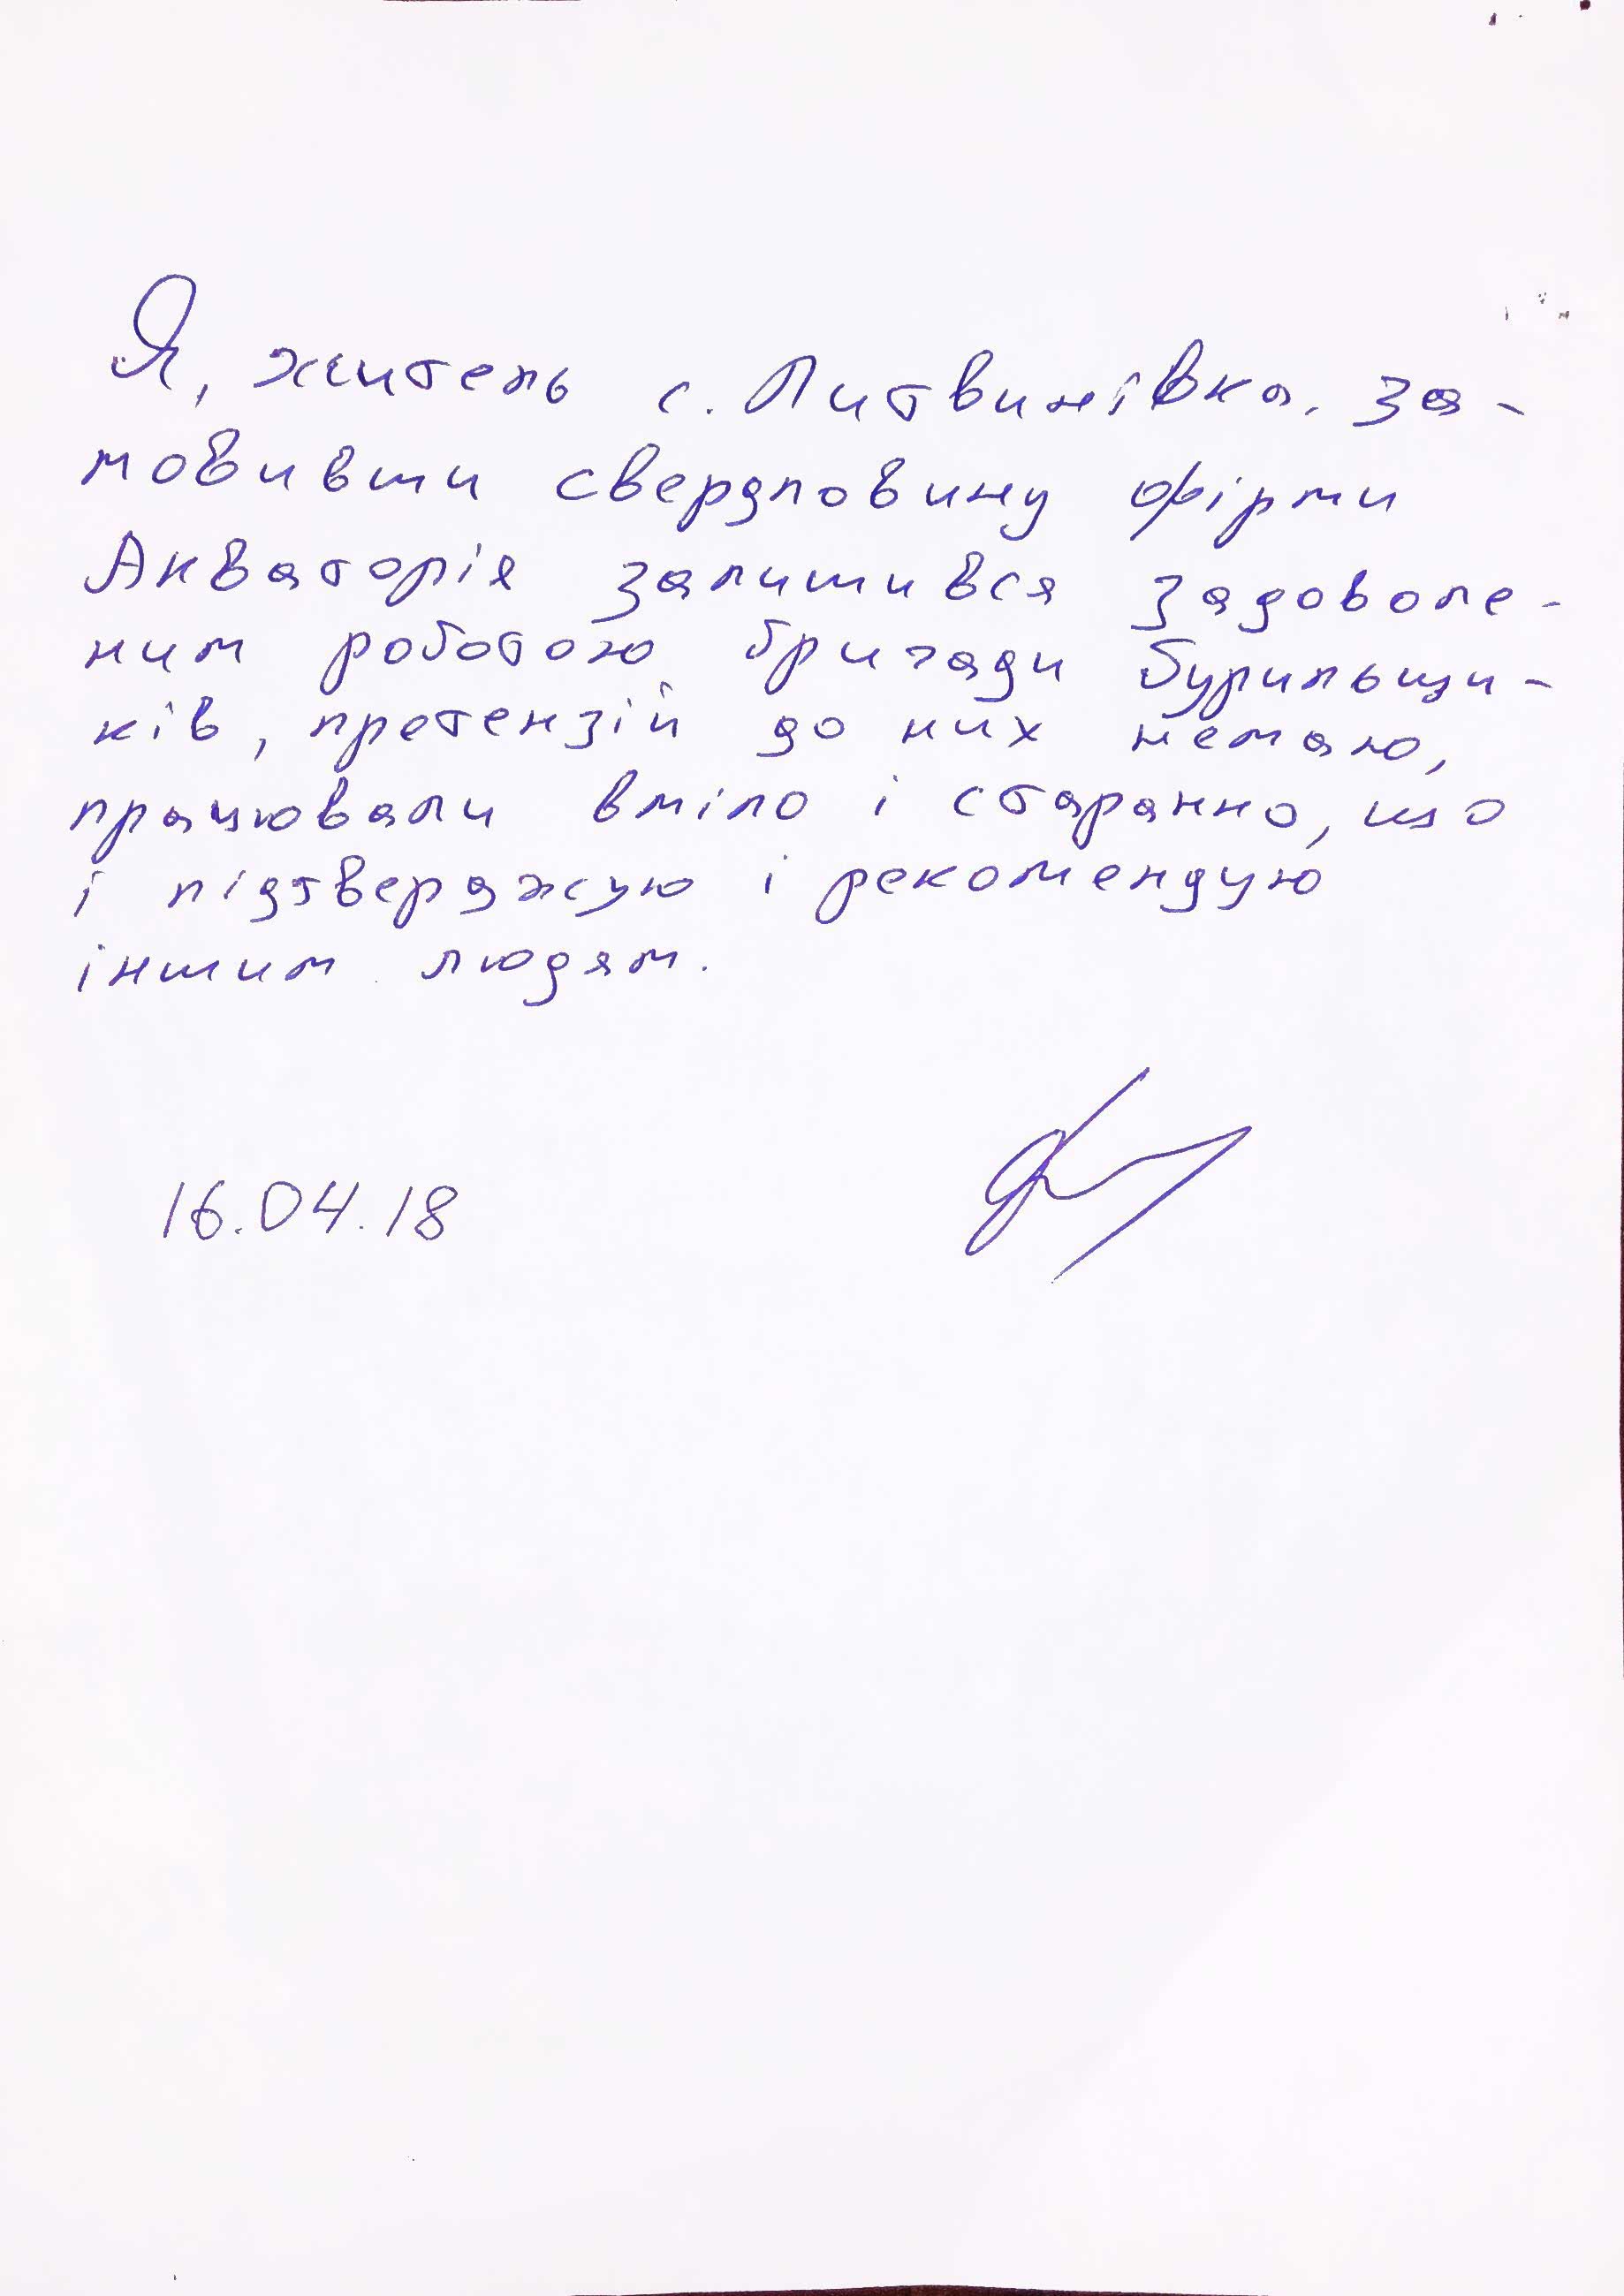 Я, житель с. Литвинівка, за-
мовивши свердловину фірми
Акваторія залишився задоволе-
ним роботою бригади бурильщи-
ків, претензій до них немаю,
працювали вміло і старанно, що
і підтверджую і рекомендую
іншим людям.
16.04.18